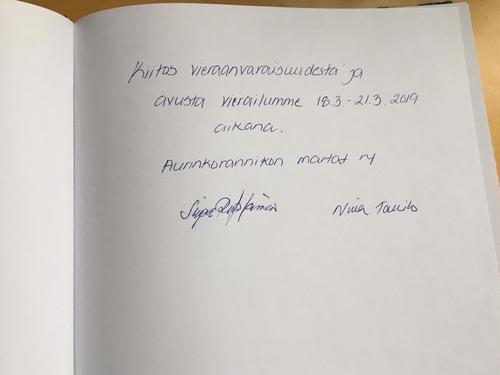 Kiitos vieraanvaraisuudesta ja
avusta vierailumme 18.3.-21.3.2019
aikana.
Aurinkorannikon martat ry
Nina